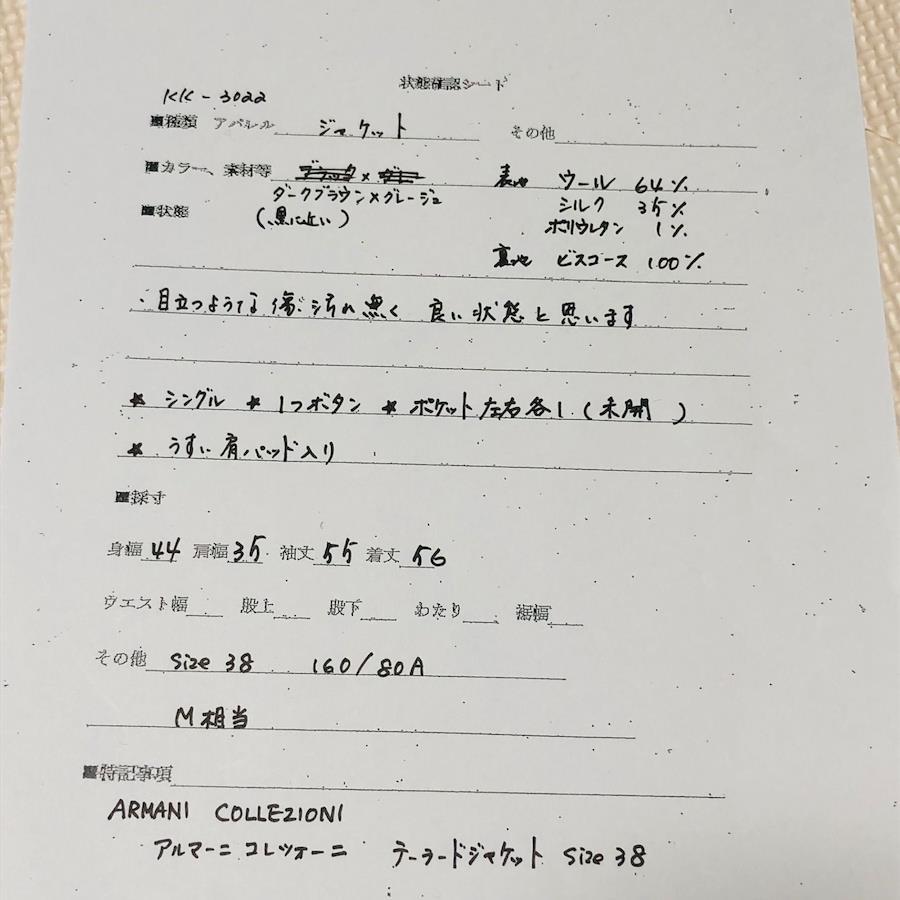 状態確認シート
KK-3022
■種類 アパレル ジャケット その他
■カラー、素材等 ブラック×グレー 表地 ウール 64%
ダークブラウン×グレージュ シルク 35%
■状態 (黒に近い) ポリウレタン 1%
裏地 ビスコース 100%
・目立つような傷、汚れ無く 良い状態と思います
★ シングル ★ 1つボタン ★ ポケット左右各1(未開 )
★ うすい肩パッド入り
■採寸
身幅 44 肩幅 35 袖丈 55 着丈 56
ウエスト幅 股上 股下 わたり 裾幅
その他 size 38 160/80A
M相当
■特記事項
ARMANI COLLEZIONI
アルマーニ コレツォーニ テーラードジャケット size 38